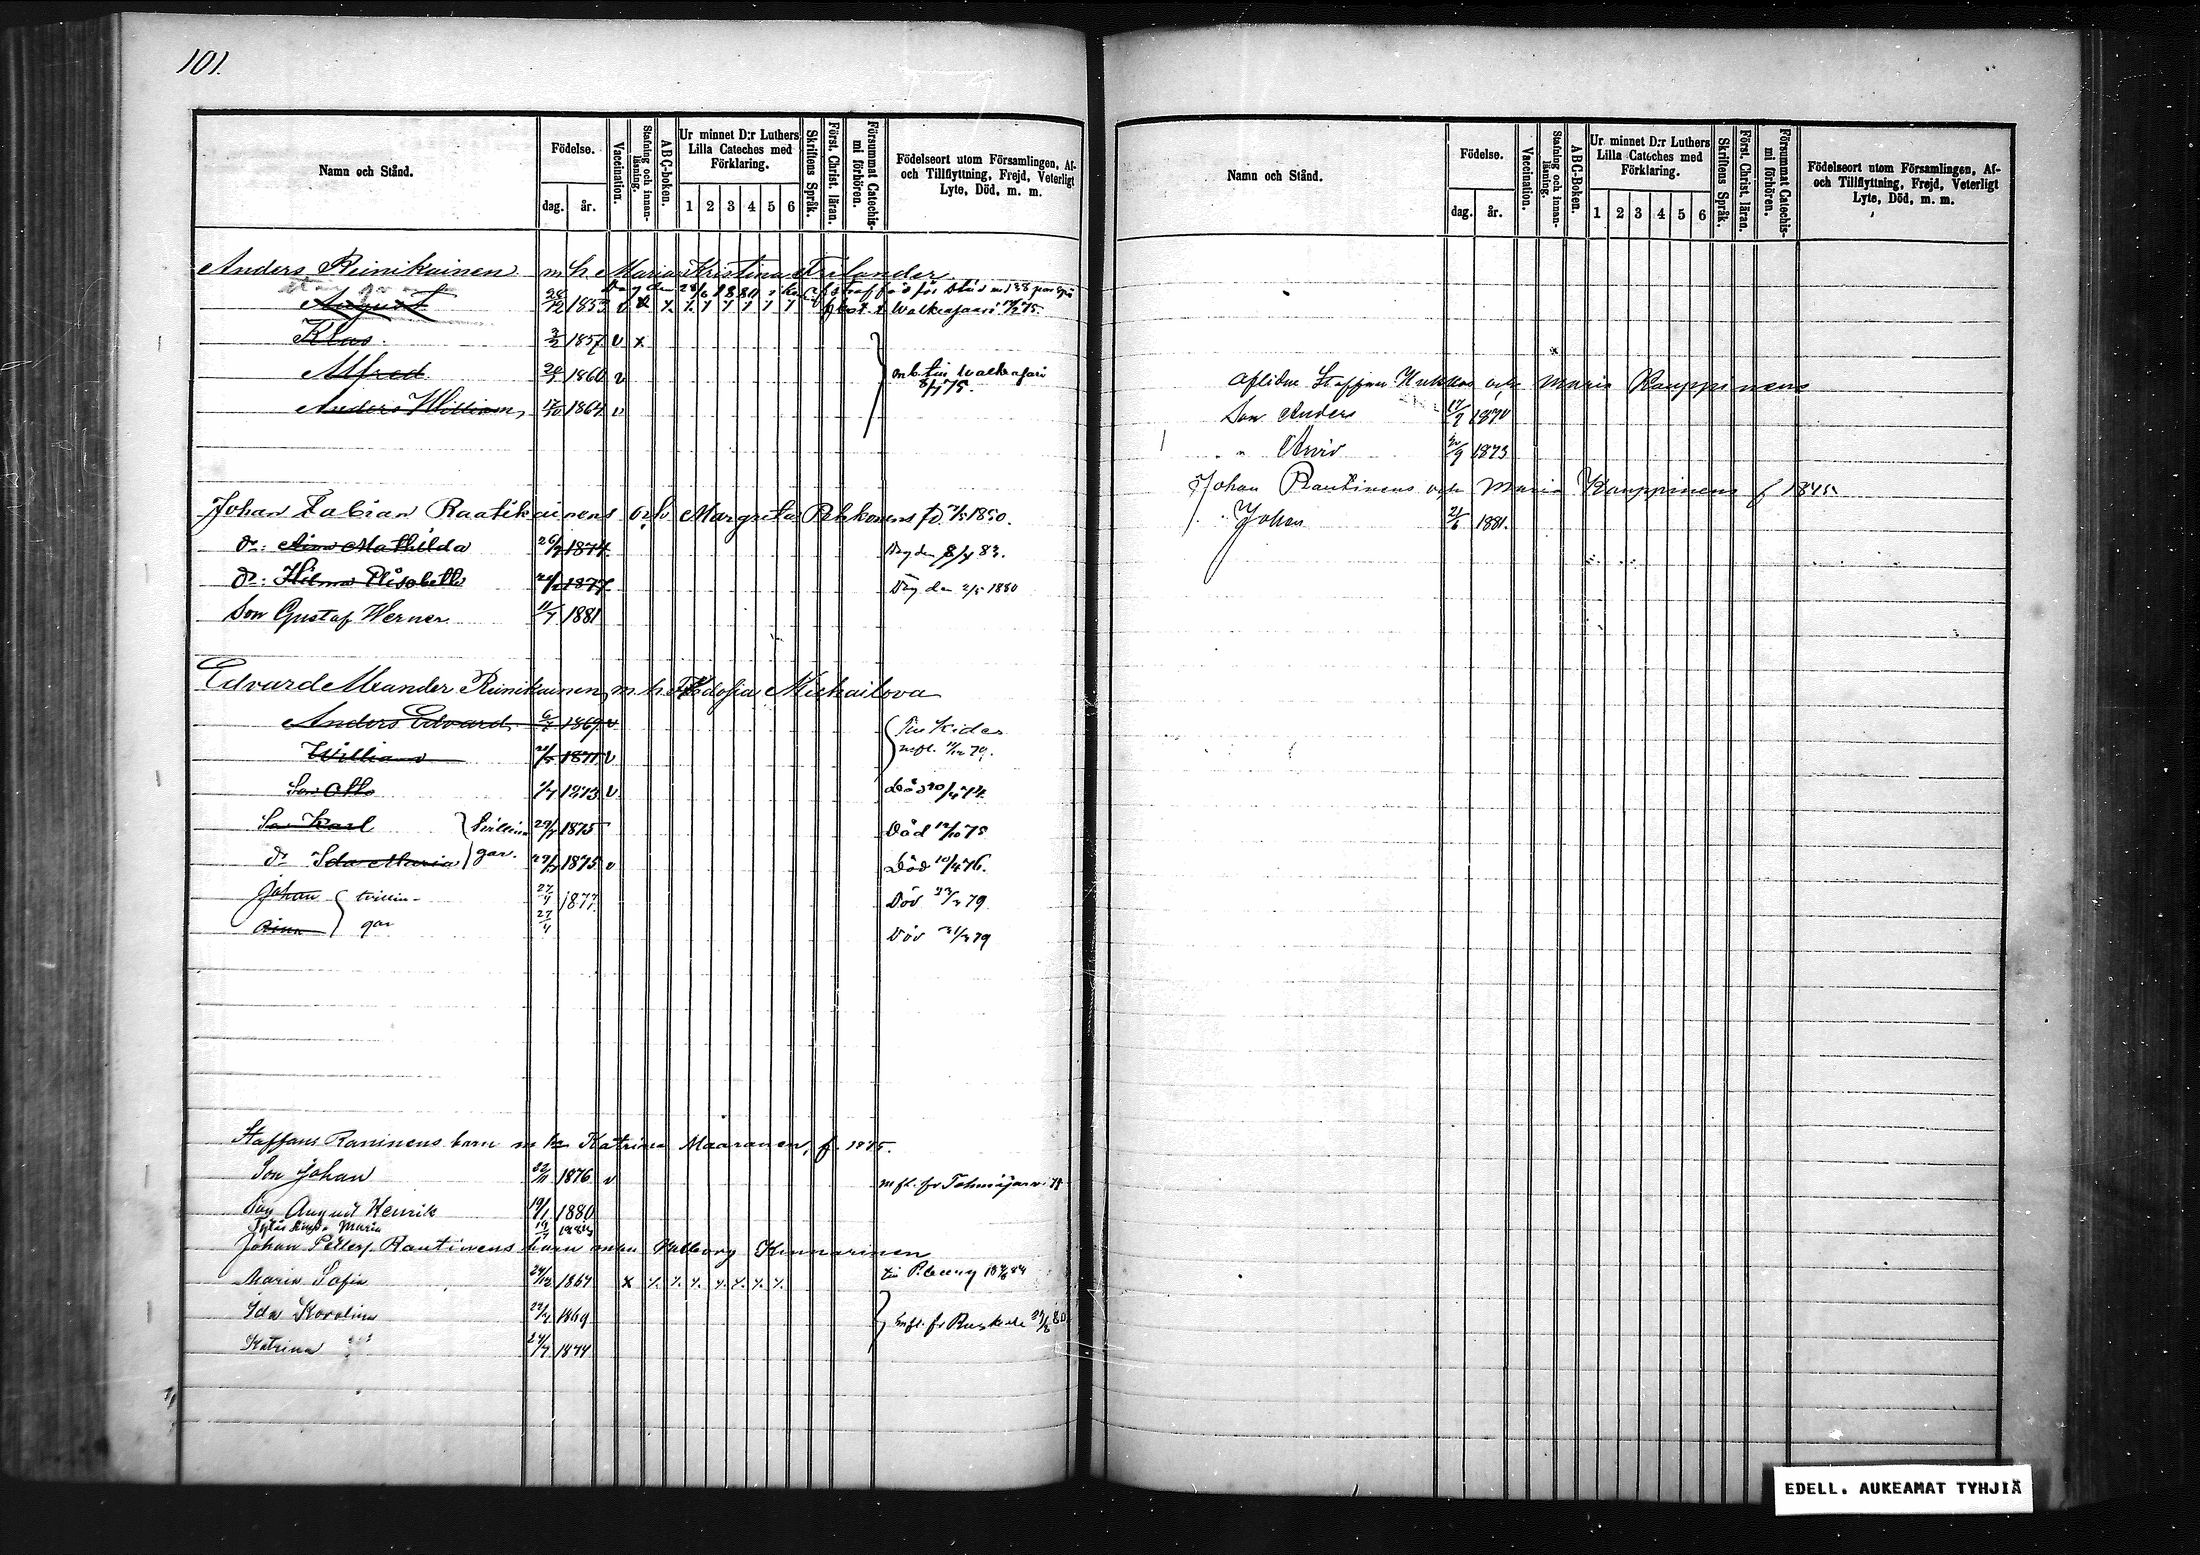 101.
Namn och Stånd.
Födelse.
dag. år.
Vaccination.
Stafning och innan-läsning.
ABC-boken.
Ur minnet D:r Luthers Lilla Cateches med Förklaring.
1 2 3 4 5 6
Skriftens Språk.
Först. Christ. läran.
Försummat Catechis-mi förhören.
Födelseort utom Församlingen, Af- och Tillflyttning, Frejd, Veterligt Lyte, Död, m. m.
Anders Reinikainen m h Maria Kristina Frilander
August 28/12 1853 v Walkeasaari 75.
Klas 3/2 1857 v x
Alfred 20/7 1860 v m b. till Walkeasari 8/7 75.
Anders William 17/10 1864 v
Johan Fabian Raatikainens och Margreta Pekkonens fö. 1850.
dr: Aina Mathilda 26/7 1874 Dog den 8/4 83.
dr: Hilma Elisabeth 1877 Dög den 2/5 1880
Son Gustaf Werner 11/7 1881
Edvard Meander Reinikainen m. h. Fedosia Michailova
Anders Edvard 6/7 1869 v Till Kides
William 1871 v infl. 11/12 70.
Son Otto 1/7 1873 v Död 20/4 74.
Son Karl Tvillin 29/7 1875 Död 12/10 75
dr Ida Maria gar. 29/7 1875 v Död 10/4 76.
Johan tvillin- 27/4 1877 Död 22/3 79
Aina gar 27/4 Död 21/3 79
Staffans Raninens barn m h Katrina Maaranen, f. 1845.
Son Johan 22/11 1876 v infl. fr Tohmajärvi 78
Son August Henrik 19/1 1880
Maria
Johan Petters. Rautinens barn m Valborg Kinnarinen
Maria Sofia 24/12 1864 x till P.burg
Ida Karolina 22/4 1869 Infl. fr Ruskeala 80
Katrina 24/7 1874
Namn och Stånd.
Födelse.
dag. år.
Vaccination.
Stafning och innan-läsning.
ABC-Boken.
Ur minnet D:r Luthers Lilla Cateches med Förklaring.
1 2 3 4 5 6
Skriftens Språk.
Först. Christ. läran.
Försummat Catechis-mi förhören.
Födelseort utom Församlingen, Af- och Tillflyttning, Frejd, Veterligt Lyte, Död, m. m.
Aflidne Staffan Hukkas och Maria Kauppinens
Son Anders 17/7 1870
" 1873
Johan Rautinens och Maria Kauppinens f 1845
Johan 21/6 1881.
EDELL. AUKEAMAT TYHJIÄ